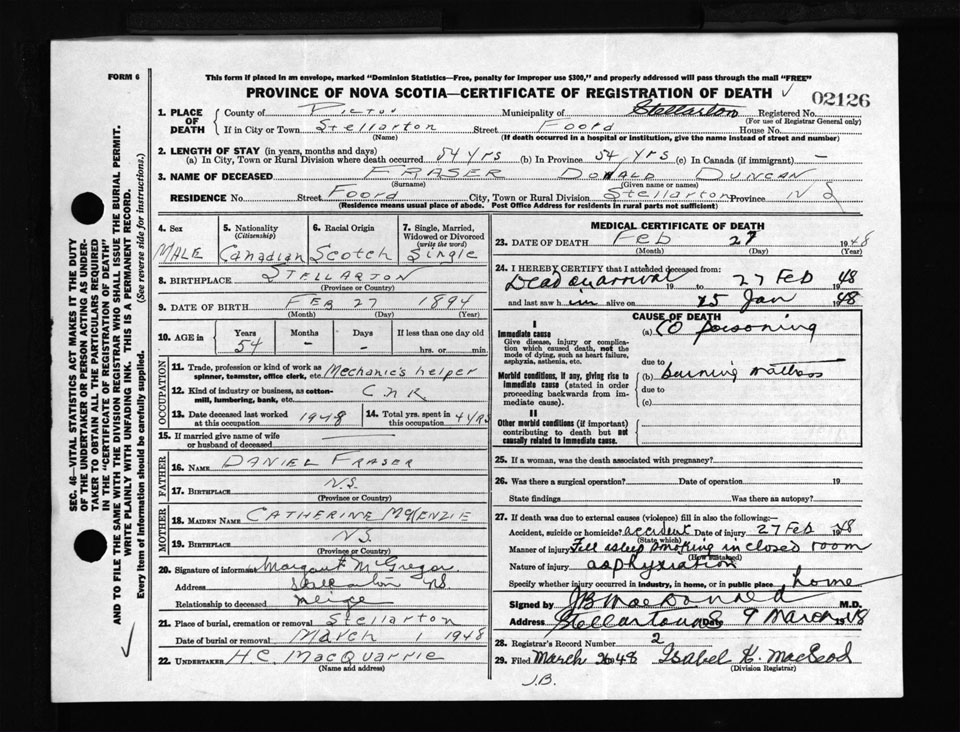 FORM 6
This form if placed in an envelope, marked "Dominion Statistics—Free, penalty for improper use $300," and properly addressed will pass through the mail "FREE"
PROVINCE OF NOVA SCOTIA—CERTIFICATE OF REGISTRATION OF DEATH
02126
1. PLACE OF DEATH
County of Pictou Municipality of Stellarton Registered No.
(For use of Registrar General only)
If in City or Town Stellarton Street Foord House No.
(Name) (If death occurred in a hospital or institution, give the name instead of street and number)
2. LENGTH OF STAY (in years, months and days)
(a) In City, Town or Rural Division where death occurred 54 yrs (b) In Province 54 yrs (c) In Canada (if immigrant) —
3. NAME OF DECEASED FRASER DONALD DUNCAN
(Surname) (Given name or names)
RESIDENCE No. Street Foord City, Town or Rural Division Stellarton Province N S
(Residence means usual place of abode. Post Office Address for residents in rural parts not sufficient)
4. Sex
MALE
5. Nationality
(Citizenship)
Canadian
6. Racial Origin
Scotch
7. Single, Married, Widowed or Divorced
(write the word)
Single
8. BIRTHPLACE STELLARTON
(Province or Country)
9. DATE OF BIRTH FEB 27 1894
(Month) (Day) (Year)
10. AGE in Years Months Days If less than one day old
54 — — hrs. or min.
OCCUPATION
11. Trade, profession or kind of work as spinner, teamster, office clerk, etc. Mechanic's helper
12. Kind of industry or business, as cotton-mill, lumbering, bank, etc. C N R
13. Date deceased last worked at this occupation 1948
14. Total yrs. spent in this occupation 4 YRS
15. If married give name of wife or husband of deceased
FATHER
16. NAME DANIEL FRASER
17. BIRTHPLACE N.S.
(Province or Country)
MOTHER
18. MAIDEN NAME CATHERINE McKENZIE
19. BIRTHPLACE N.S.
(Province or Country)
20. Signature of informant Margaret McGregor
Address Stellarton NS
Relationship to deceased Neice
21. Place of burial, cremation or removal Stellarton
Date of burial or removal March 1 1948
22. UNDERTAKER H.C. MACQUARRIE
(Name and address)
MEDICAL CERTIFICATE OF DEATH
23. DATE OF DEATH Feb 27 1948
(Month) (Day) (Year)
24. I HEREBY CERTIFY that I attended deceased from:
Dead on arrival 19 to 27 Feb 1948
and last saw him alive on 15 Jan 1948
CAUSE OF DEATH
I
Immediate cause
Give disease, injury or complication which caused death, not the mode of dying, such as heart failure, asphyxia, asthenia, etc.
(a) CO poisoning
due to
Morbid conditions, if any, giving rise to immediate cause (stated in order proceeding backwards from immediate cause).
(b) burning mattress
due to
(c)
II
Other morbid conditions (if important) contributing to death but not causally related to immediate cause.
25. If a woman, was the death associated with pregnancy?
26. Was there a surgical operation? Date of operation 19
State findings Was there an autopsy?
27. If death was due to external causes (violence) fill in also the following:—
Accident, suicide or homicide? accident Date of injury 27 Feb 1948
(State which)
Manner of injury Fell asleep smoking in closed room
(How sustained)
Nature of injury asphyxiation
Specify whether injury occurred in industry, in home, or in public place home
Signed by JB MacDonald M.D.
Address Stellarton NS 9 March 1948
28. Registrar's Record Number 2
29. Filed March 1948 Isabel K. MacLeod
(Division Registrar)
J.B.
SEC. 46—VITAL STATISTICS ACT MAKES IT THE DUTY
OF THE UNDERTAKER OR PERSON ACTING AS UNDERTAKER
TO OBTAIN ALL THE PARTICULARS REQUIRED
IN THE "CERTIFICATE OF REGISTRATION OF DEATH"
AND TO FILE THE SAME WITH THE DIVISION REGISTRAR WHO SHALL ISSUE THE BURIAL PERMIT.
WRITE PLAINLY WITH UNFADING INK. THIS IS A PERMANENT RECORD.
Every item of information should be carefully supplied. (See reverse side for instructions.)